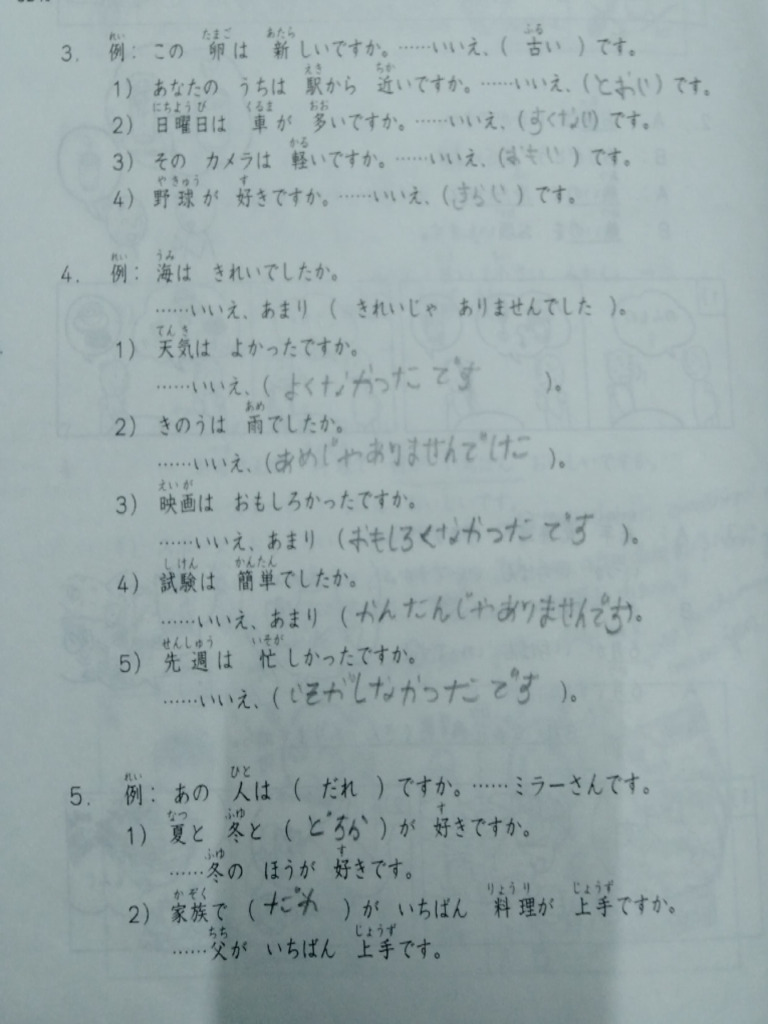 3. 例：この 卵は 新しいですか。……いいえ、( 古い ) です。
1) あなたの うちは 駅から 近いですか。……いいえ、(とおい) です。
2) 日曜日は 車が 多いですか。……いいえ、(すくない) です。
3) その カメラは 軽いですか。……いいえ、(おもい) です。
4) 野球が 好きですか。……いいえ、(きらい) です。
4. 例：海は きれいでしたか。
……いいえ、あまり ( きれいじゃ ありませんでした )。
1) 天気は よかったですか。
……いいえ、( よくなかったです )。
2) きのうは 雨でしたか。
……いいえ、(あめじゃありませんでした )。
3) 映画は おもしろかったですか。
……いいえ、あまり (おもしろくなかったです )。
4) 試験は 簡単でしたか。
……いいえ、あまり (かんたんじゃありませんです)。
5) 先週は 忙しかったですか。
……いいえ、(いそがしなかったです )。
5. 例：あの 人は ( だれ ) ですか。……ミラーさんです。
1) 夏と 冬と ( どちら ) が 好きですか。
……冬の ほうが 好きです。
2) 家族で ( だれ ) が いちばん 料理が 上手ですか。
……父が いちばん 上手です。